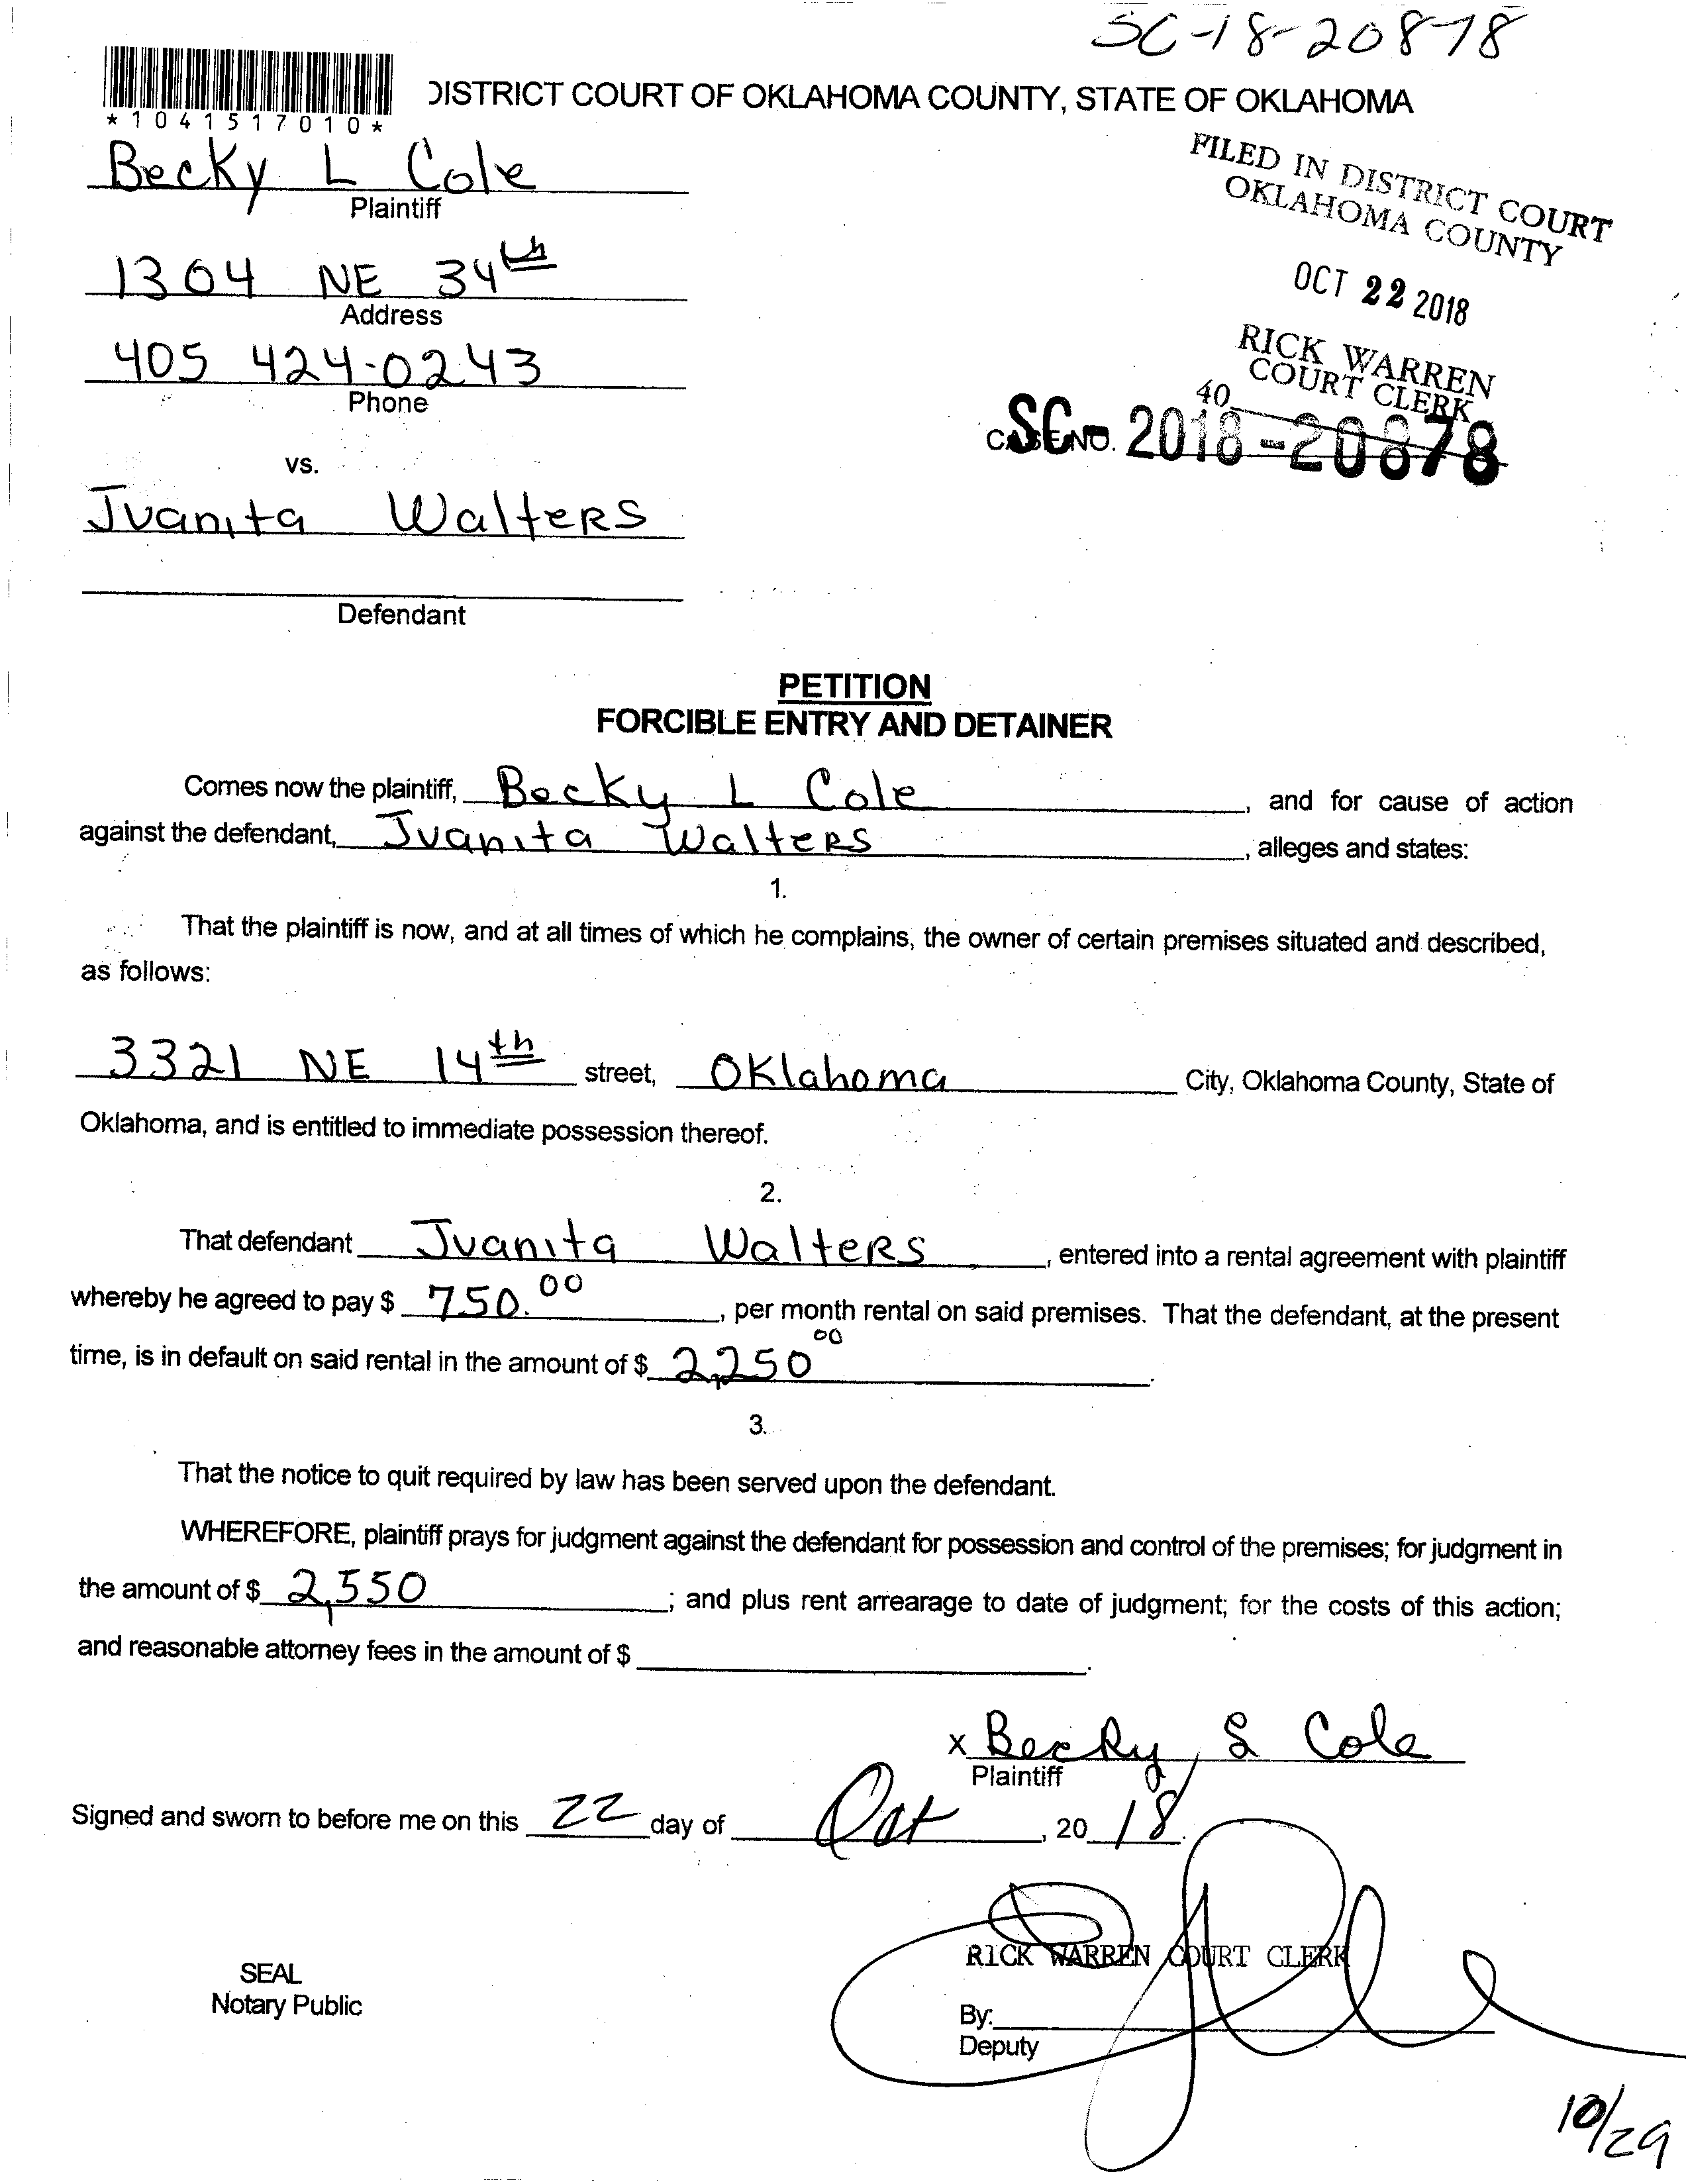 SC-18-20878
*1041517010*
DISTRICT COURT OF OKLAHOMA COUNTY, STATE OF OKLAHOMA
Becky L Cole
Plaintiff
FILED IN DISTRICT COURT
OKLAHOMA COUNTY
1304 NE 34th
Address
OCT 22 2018
405 424-0243
Phone
RICK WARREN
COURT CLERK
40
CASE NO. SC-2018-20878
vs.
Juanita Walters
Defendant
PETITION
FORCIBLE ENTRY AND DETAINER
Comes now the plaintiff, Becky L Cole, and for cause of action
against the defendant, Juanita Walters, alleges and states:
1.
That the plaintiff is now, and at all times of which he complains, the owner of certain premises situated and described,
as follows:
3321 NE 14th street, Oklahoma City, Oklahoma County, State of
Oklahoma, and is entitled to immediate possession thereof.
2.
That defendant Juanita Walters, entered into a rental agreement with plaintiff
whereby he agreed to pay $ 750.00, per month rental on said premises. That the defendant, at the present
time, is in default on said rental in the amount of $ 2,250 00.
3.
That the notice to quit required by law has been served upon the defendant.
WHEREFORE, plaintiff prays for judgment against the defendant for possession and control of the premises; for judgment in
the amount of $ 2,550; and plus rent arrearage to date of judgment; for the costs of this action;
and reasonable attorney fees in the amount of $ .
x Becky L Cole
Plaintiff
Signed and sworn to before me on this 22 day of Oct, 2018.
RICK WARREN COURT CLERK
SEAL
Notary Public
By:
Deputy
10/29